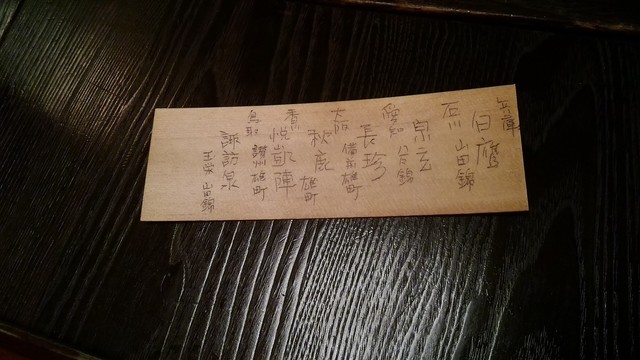 兵庫
白鷹
山田錦
石川
宗玄
愛知
長珍
備前雄町
大阪
秋鹿
雄町
香川
悦凱陣
讃州雄町
鳥取
諏訪泉
玉栄 山田錦